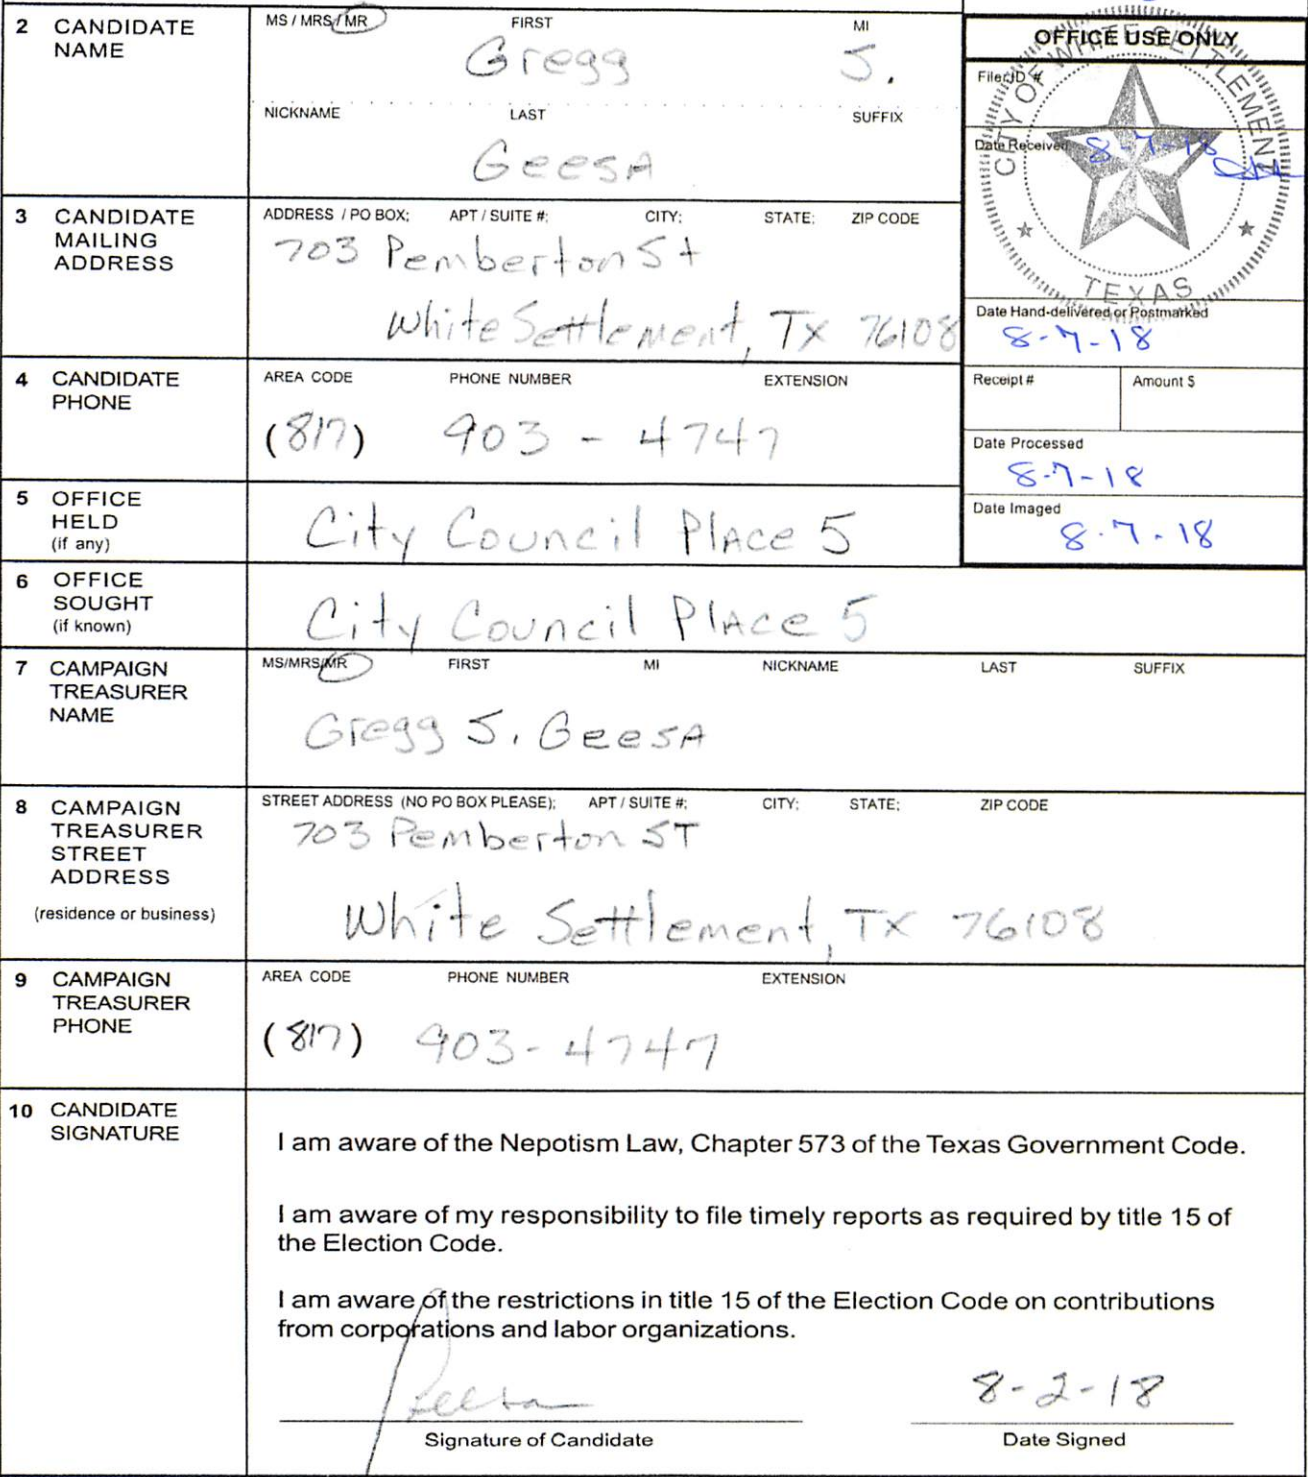 2 CANDIDATE NAME
MS / MRS / MR FIRST MI
Gregg J.
NICKNAME LAST SUFFIX
GeesA
OFFICE USE ONLY
CITY OF WHITE SETTLEMENT
TEXAS
Filer ID #
Date Received 8-7-18
Date Hand-delivered or Postmarked
8-7-18
Receipt # Amount $
Date Processed
8-7-18
Date Imaged
8-7-18
3 CANDIDATE MAILING ADDRESS
ADDRESS / PO BOX; APT / SUITE #; CITY; STATE; ZIP CODE
703 Pemberton St
White Settlement, TX 76108
4 CANDIDATE PHONE
AREA CODE PHONE NUMBER EXTENSION
(817) 903 - 4747
5 OFFICE HELD (if any)
City Council PlAce 5
6 OFFICE SOUGHT (if known)
City Council PlAce 5
7 CAMPAIGN TREASURER NAME
MS/MRS/MR FIRST MI NICKNAME LAST SUFFIX
Gregg J. GeesA
8 CAMPAIGN TREASURER STREET ADDRESS
(residence or business)
STREET ADDRESS (NO PO BOX PLEASE); APT / SUITE #; CITY; STATE; ZIP CODE
703 Pemberton ST
White Settlement, TX 76108
9 CAMPAIGN TREASURER PHONE
AREA CODE PHONE NUMBER EXTENSION
(817) 903-4747
10 CANDIDATE SIGNATURE
I am aware of the Nepotism Law, Chapter 573 of the Texas Government Code.
I am aware of my responsibility to file timely reports as required by title 15 of
the Election Code.
I am aware of the restrictions in title 15 of the Election Code on contributions
from corporations and labor organizations.
8-2-18
Signature of Candidate Date Signed